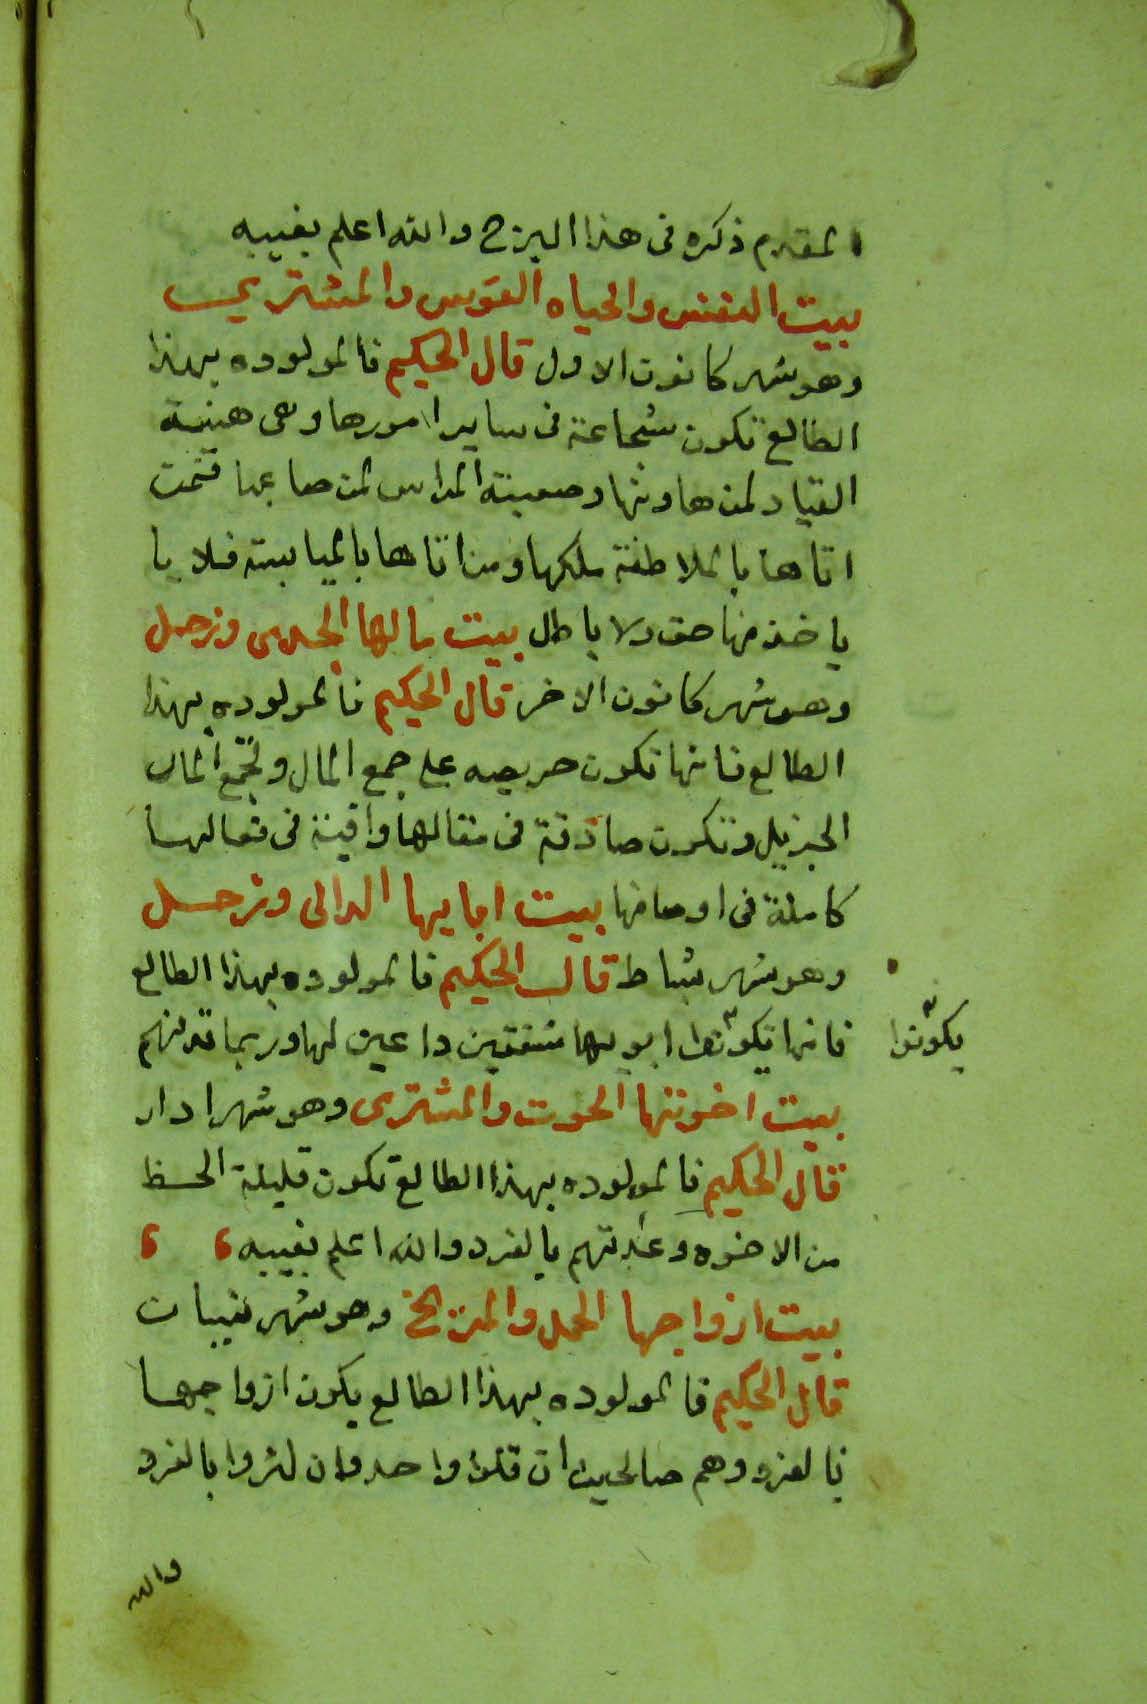 المقدم ذكره فى هذا البرج والله اعلم بغيبه
بيت النفس والحياه القوس والمشتري
وهو شهر كانون الاول قال الحكيم فالمولوده بهذا
الطالع تكون شجاعة فى ساير امورها وهى هنية
القياد لمن هاونها وصعبة المراس لمن صاعبها فمن
اتاها بالملاطفة ملكها ومن اتاها بالميابسة فلا يا
ياخذ منها حق ولا باطل بيت مالها الجدى وزحل
وهو شهر كانون الاخر قال الحكيم فالمولوده بهذا
الطالع فانها تكون حريصه على جمع المال وتجمع المال
الجزيل وتكون صادقة فى مقالها وافية فى فعالها
كاملة فى اوصافها بيت ابايها الدالى وزحل
وهو شهر شباط قال الحكيم فالمولوده بهذا الطالع
فانها يكونوا ابويها شفقين داعين لها وربما
يكونوا
بيت اخوتها الحوت والمشترى وهو شهر ادار
قال الحكيم فالمولوده بهذا الطالع تكون قليلة الحظ
من الاخوه وعدتهم بالفرد والله اعلم بغيبه
بيت ازواجها الحمل والمريخ وهو شهر نيسان
قال الحكيم فالمولوده بهذا الطالع يكون ازواجها
بالفرد وهم صالحين ان قلوا واحد وان كثروا بالفرد
والله